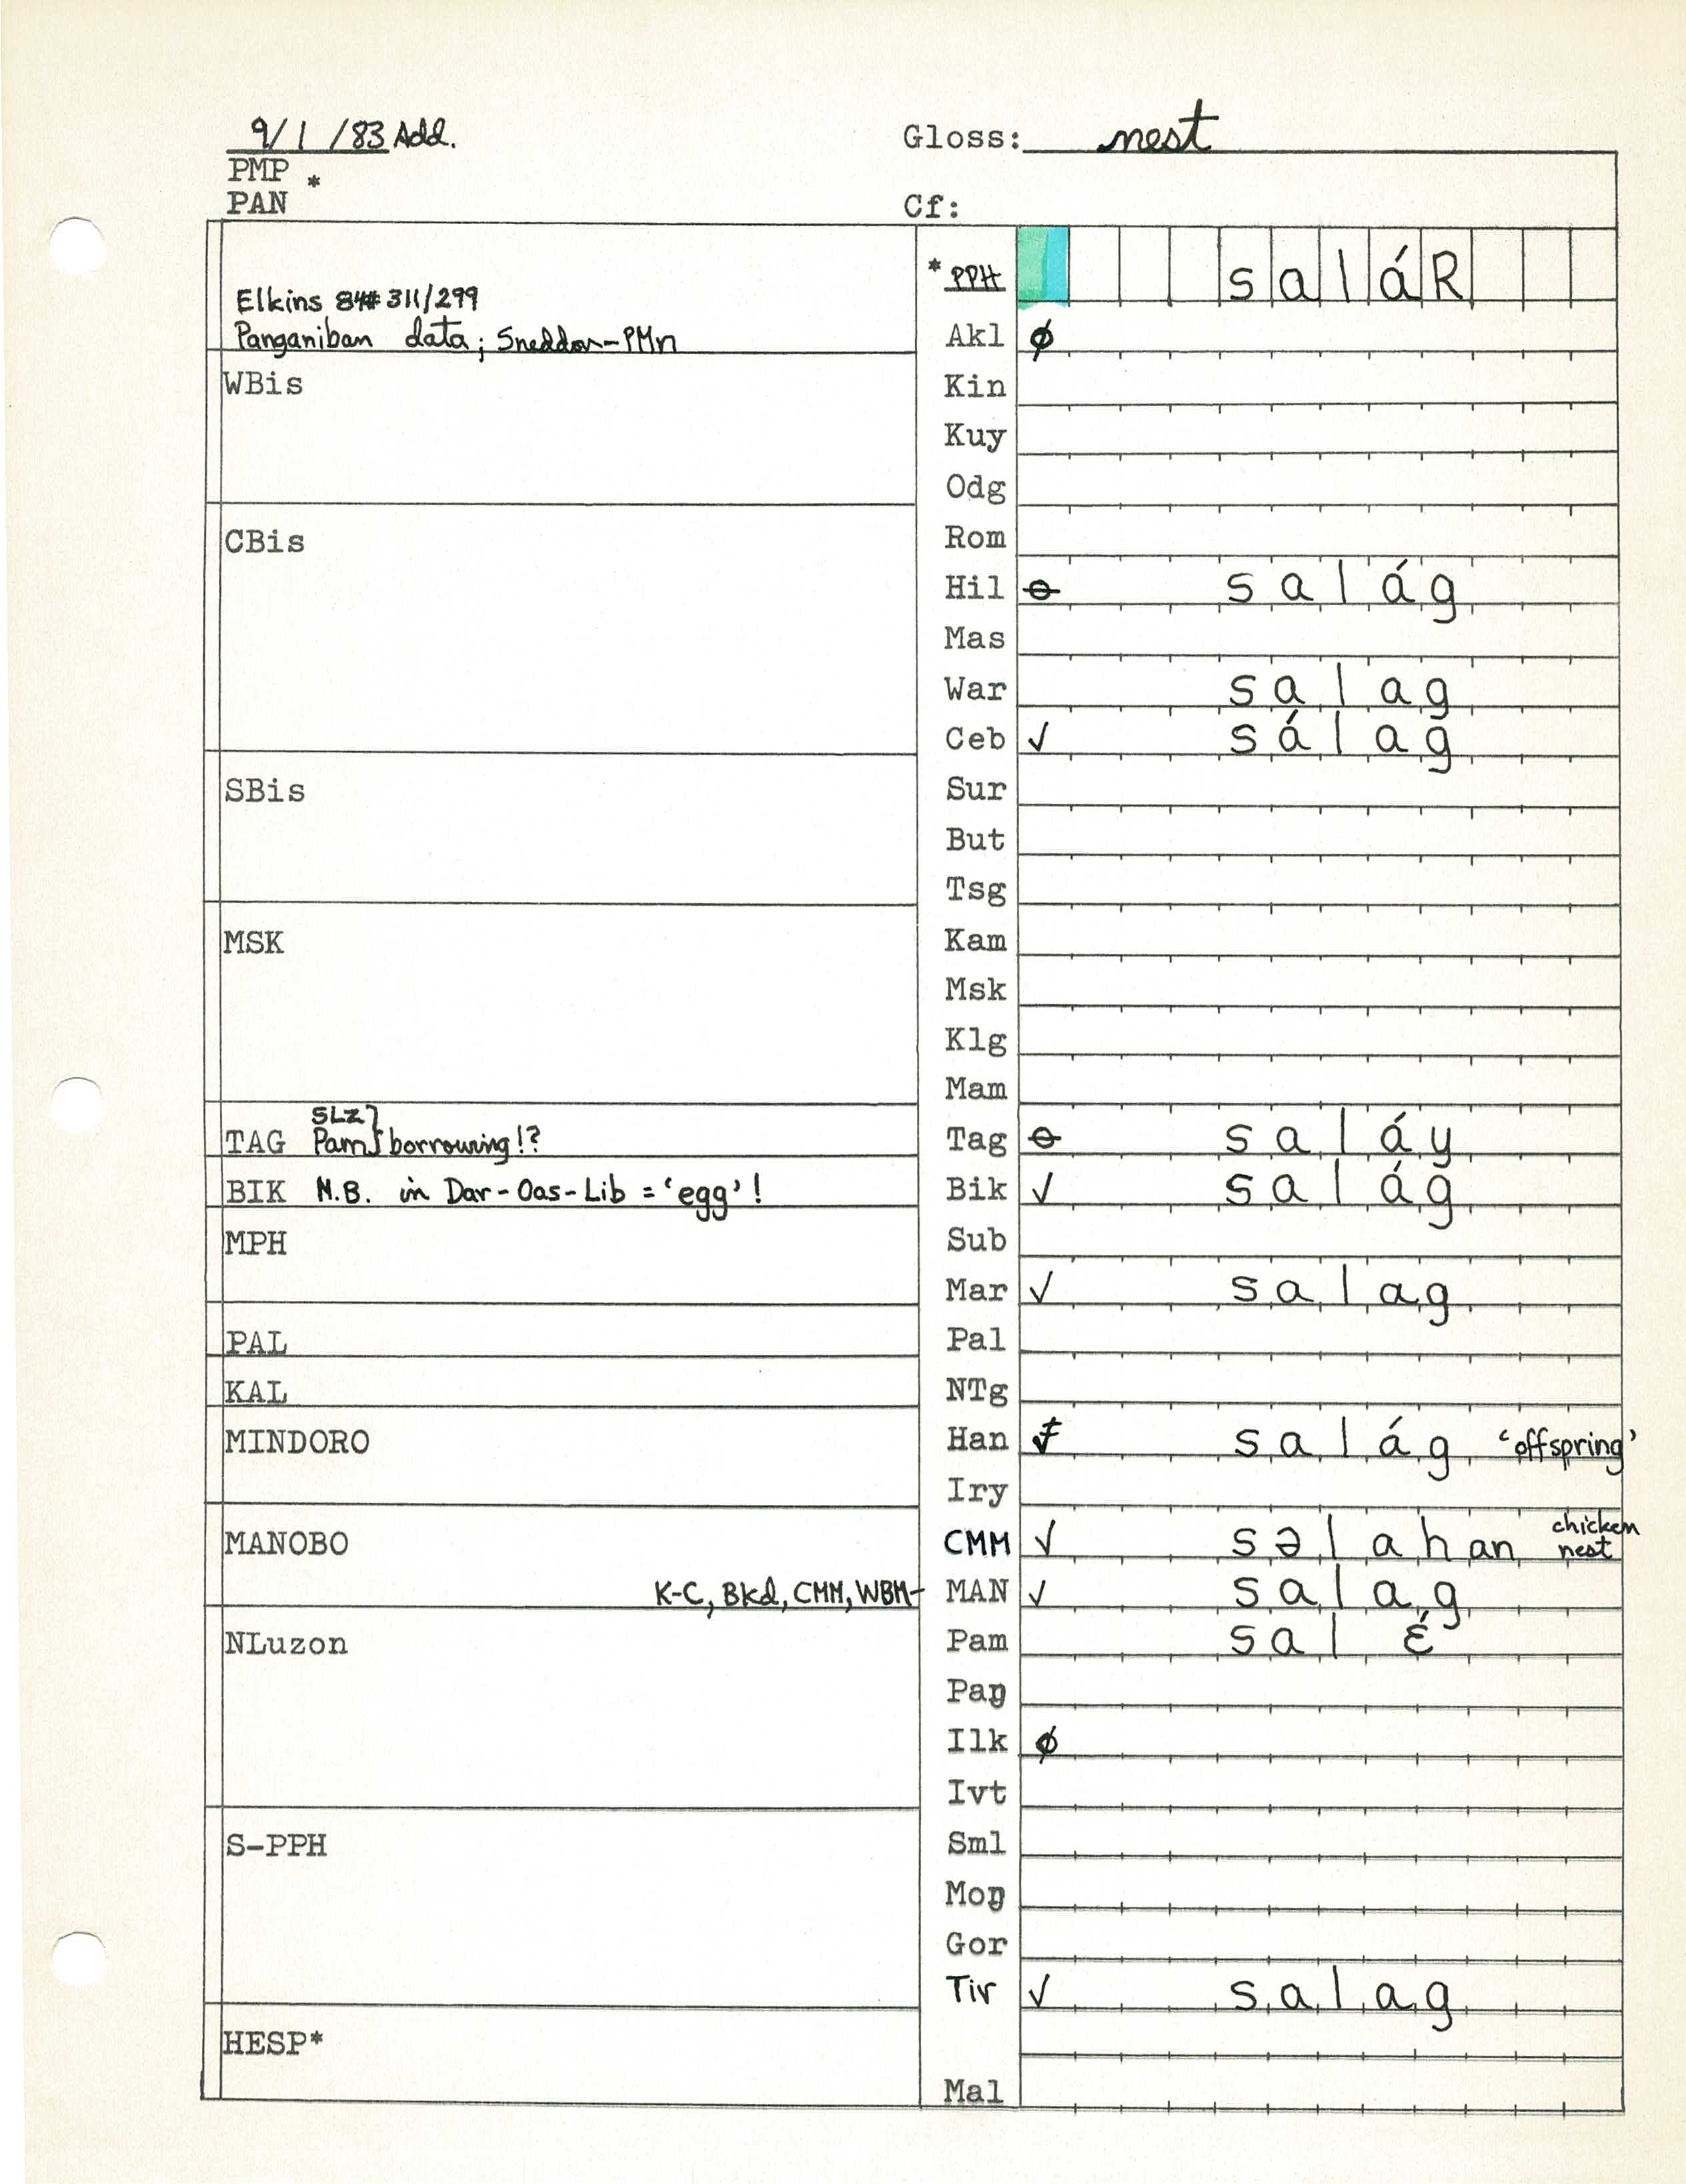 9/1/83 Add.
Gloss: nest
PMP
*
PAN
Cf:
* PPH saláR
Elkins 84# 311/299
Panganiban data; Sneddon-PMn
Akl ϕ
WBis
Kin
Kuy
Odg
CBis
Rom
Hil ⊖ salág
Mas
War salag
Ceb √ sálag
SBis
Sur
But
Tsg
MSK
Kam
Msk
Klg
Mam
SLZ
TAG Pam} borrowing!?
Tag ⊖ saláy
BIK N.B. in Dar-Oas-Lib = 'egg'!
Bik √ salág
MPH
Sub
Mar √ salag
PAL
Pal
KAL
NTg
MINDORO
Han salág 'offspring'
Iry
MANOBO
CMM √ səlahan chicken nest
K-C, Bkd, CMM, WBM- MAN √ salag
NLuzon
Pam salɛ́
Paŋ
Ilk ϕ
Ivt
S-PPH
Sml
Moŋ
Gor
Tir √ salag
HESP*
Mal